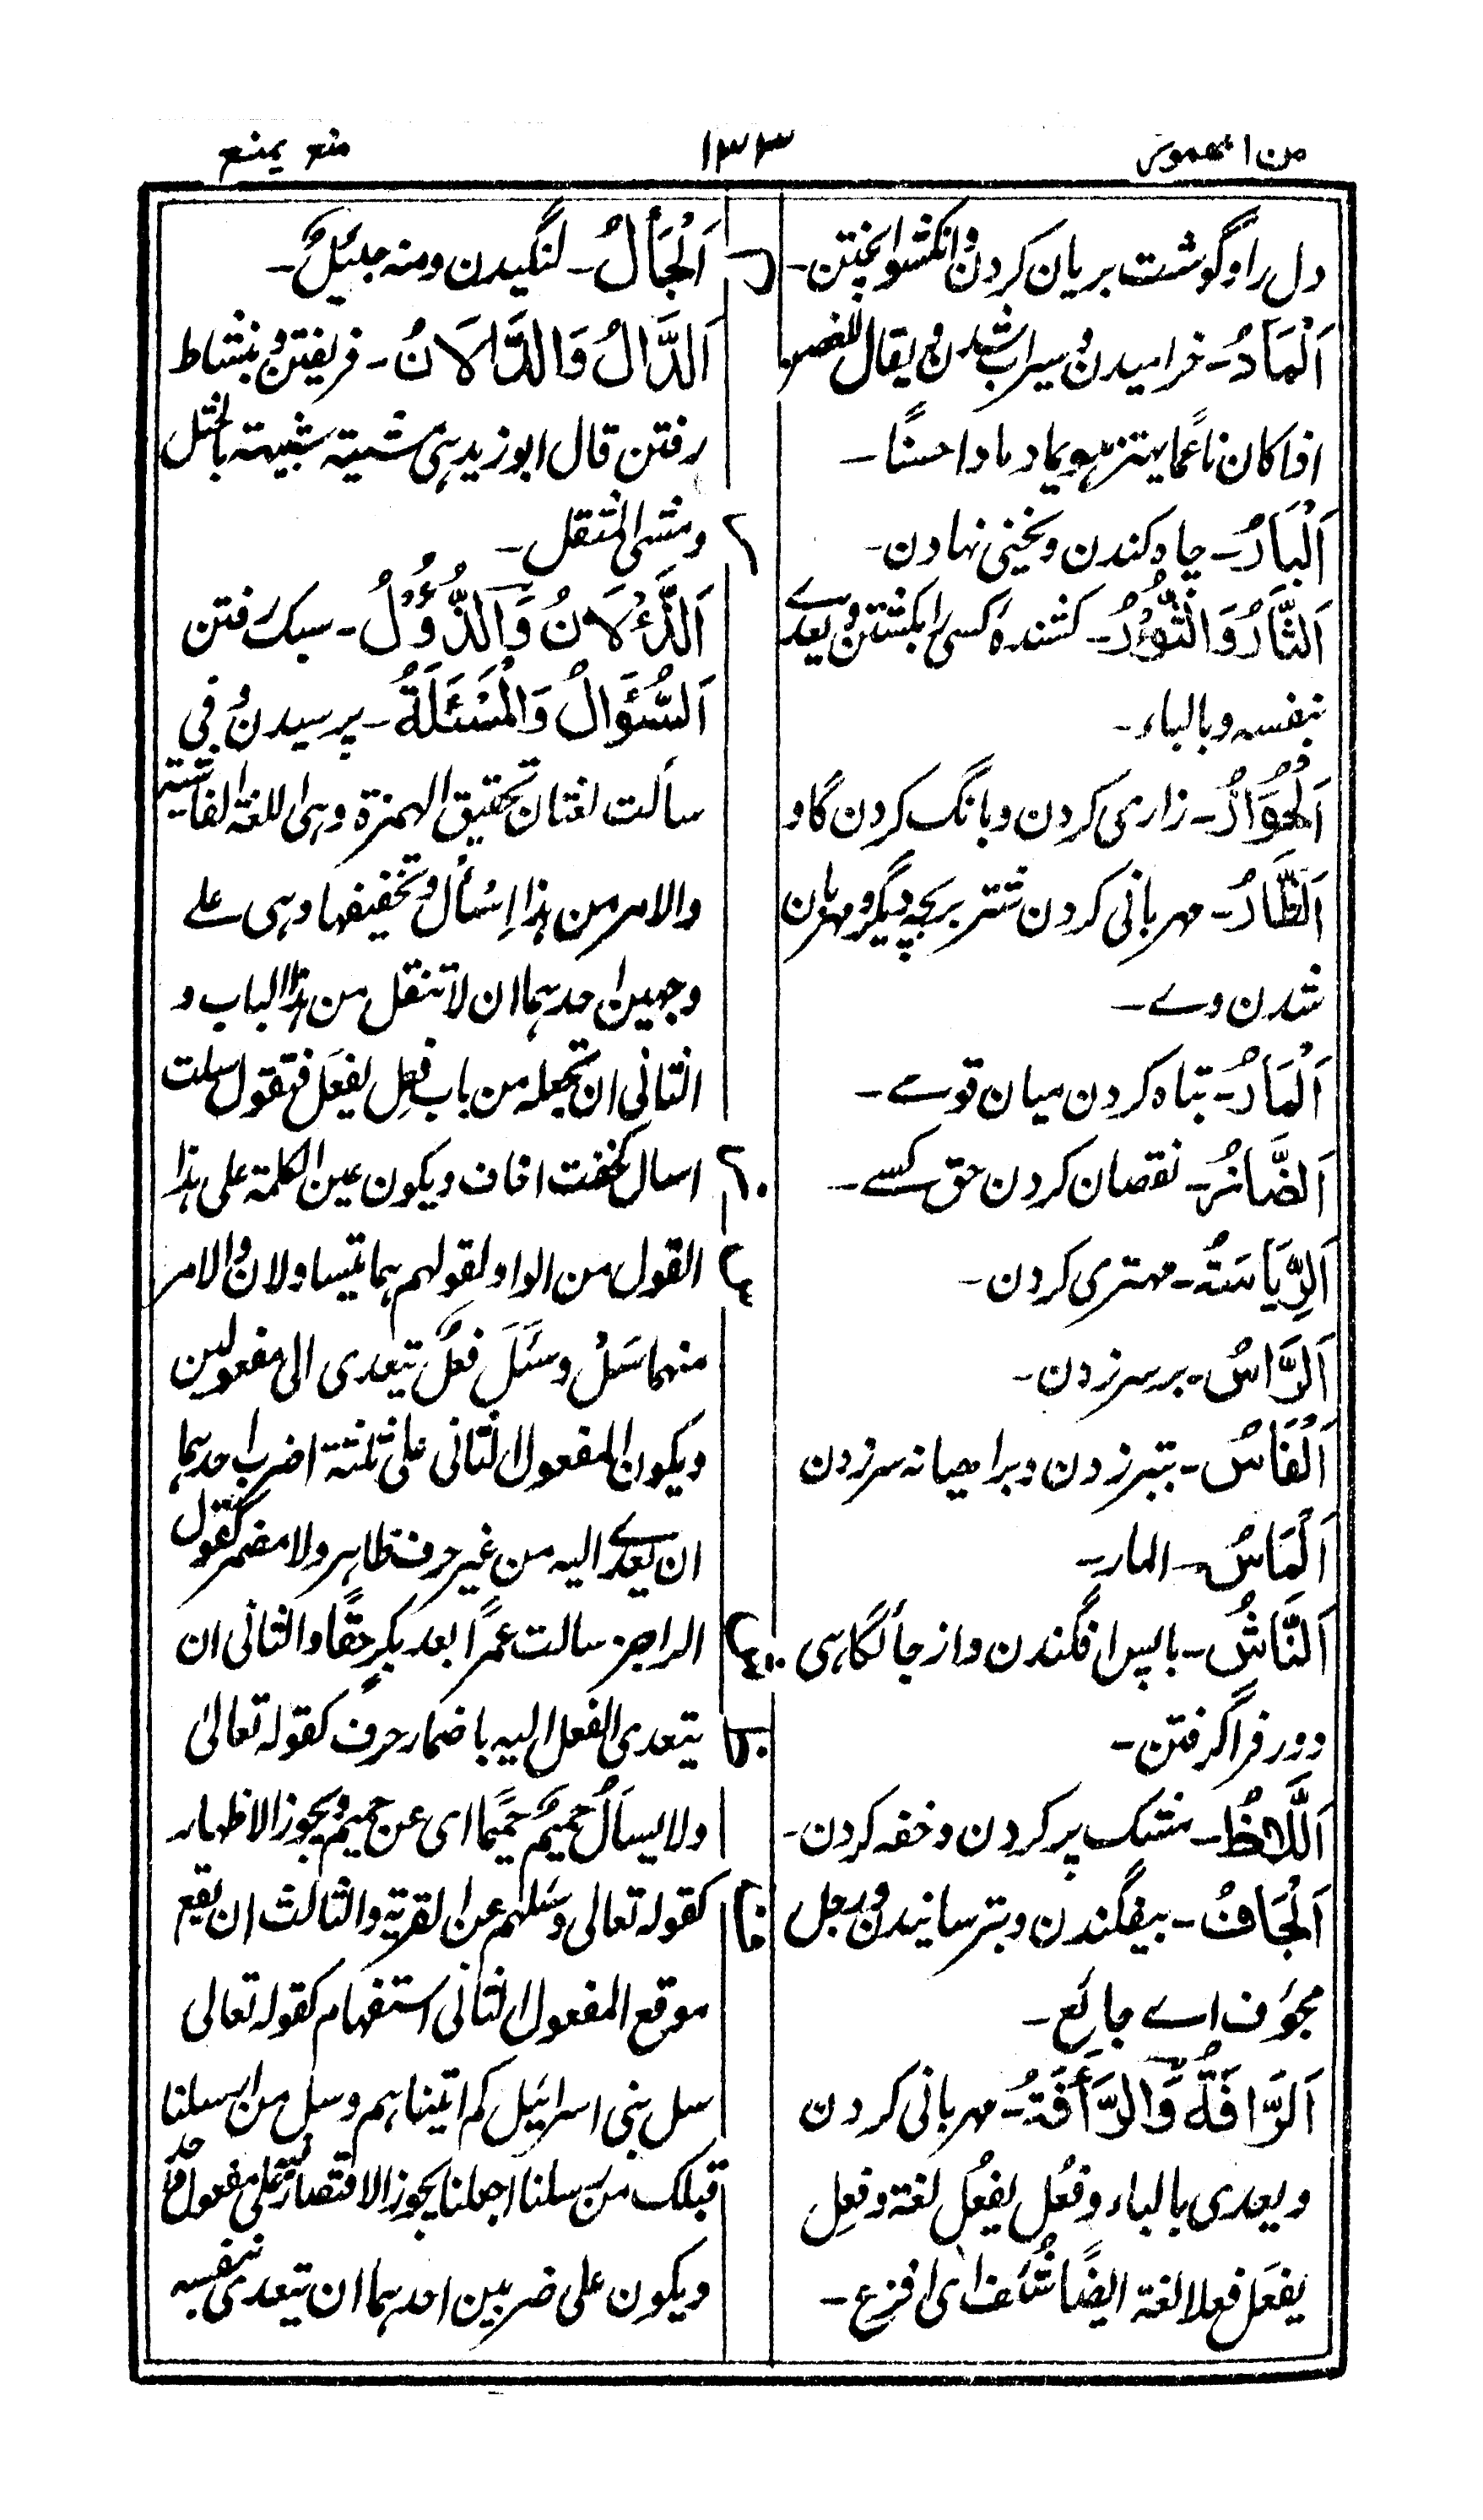 من المهموس
١٣٣
منع يمنع
دل را و گوشت بريان كردن و انكشوا پختن -
اَلْمَأدُ - خراميدن و سيراب شدن و يقال للغصن
اذا كان ناعمًا يهتز هو يماد مادا حسنًا -
اَلْبَأرُ - چاه كندن و يخنى نهادن -
اَلثَّأرُ وَالثُّؤرُ - كشنده كسى را بكشتن و يعدے
بنفسه و بالباء -
اَلْجُؤَارُ - زارى كردن و بانگ كردن گاو
اَلظَّأرُ - مهربانى كردن شتر بر بچه ديگر و مهربان
شدن وے -
اَلْمَأرُ - تباه كردن ميان قومے -
اَلضَّأزُ - نقصان كردن حق كسے -
اَلرِّيَاسَةُ - مهترى كردن -
اَلرَّأسُ - بر سر زدن -
اَلْفَأسُ - بتبر زدن و بر اصيانه سر زدن
اَلْمَأسُ - المار -
اَلنَّأشُ - باپس افگندن و از جائگاهى
دور فرا گرفتن -
اَللَّأظُ - مشك پر كردن و خفه كردن -
اَلْجَأفُ - بيفگندن و بترسانيدن و رجل
مجوَف اے جائع -
اَلرَّافَةُ وَالرَّأفَةُ - مهربانى كردن
و يعدى بالباء و فعُل يفعُل لغة و فعِل
يفعَل فعلا لغة ايضًا شُئف اى افزع -
ل
اَلْجَألُ - لنگيدن و منه جيئلٌ -
اَلدَّألُ وَالدَّألَانُ - فريفتن و بنشاط
رفتن قال ابو زيد هى مشية شبيهة بالختل
و مشى المثقل -
اَلذَّءْلَانُ وَالذُّؤُلُ - سبك رفتن
اَلسُّؤَالُ وَالْمَسْئَلَةُ - پرسيدن و فى
سألت لغتان تحقيق الهمزة و هى اللغة الفاشية
والامر من هذا اِسْأل و تخفيفها و هى علے
وجهين احدهما ان لا تنقل من هذا الباب و
الثانى ان تجعله من باب فعِل يفعَل فتقول سلت
اسال كخفت اخاف و يكون عين الكلمة على هذا
القول من الواو لقولهم هما يتساولان والامر
منهما سَلْ و سَئَلَ فعل يتعدى الى مفعولين
و يكون المفعول الثانى على ثلثة اضرب احدها
ان يعدے اليه من غير حرف ظاهر ولا مضمر كقول
الراجز سالت عمرًا بعد بكرٍ خفًا والثانى ان
يتعدى الفعل اليه باضمار حرف كقوله تعالىٰ
ولا يسألُ حميمٌ حميمًا اى عن حميم و يجوز الاظهار
كقوله تعالى وسَلهم عن القرية والثالث ان يقع
موقع المفعول الثانى استفهام كقوله تعالى
سل بنى اسرائيل كم اتيناهم و سل من ارسلنا
قبلك من رسلنا اجعلنا يجوز الاقتصار فيه على مفعول واحد
و يكون على ضربين احدهما ان يتعدى بنفسه